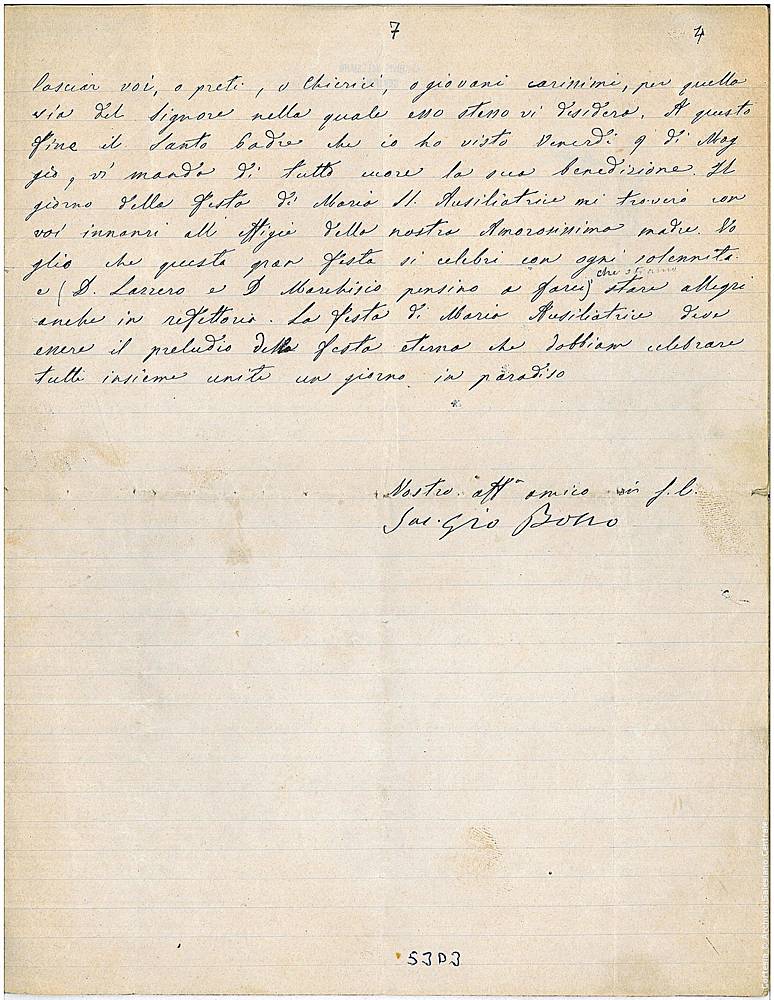 7 4
lasciar voi, o preti, o Chierici, o giovani carissimi, per quella
via del Signore nella quale esso stesso vi desidera. A questo
fine il Santo Padre che io ho visto Venerdì 9 di Mag
gio, vi manda di tutto cuore la sua benedizione. Il
giorno della festa di Maria SS. Ausiliatrice mi troverò con
voi innanzi all Effigie della nostra Amorosissima madre. Vo
glio che questa gran festa si celebri con ogni solennità
e (D. Lazzero e D Marchisio pensino a farci) stare allegri
che stiamo
anche in refettorio. La festa di Maria Ausiliatrice deve
essere il preludio della festa eterna che dobbiam celebrare
tutti insieme uniti un giorno in paradiso
Vostro aff amico in G. C.
Sac. Gio Bosco
S3D3
Cortesia © Archivio Salesiano Centrale